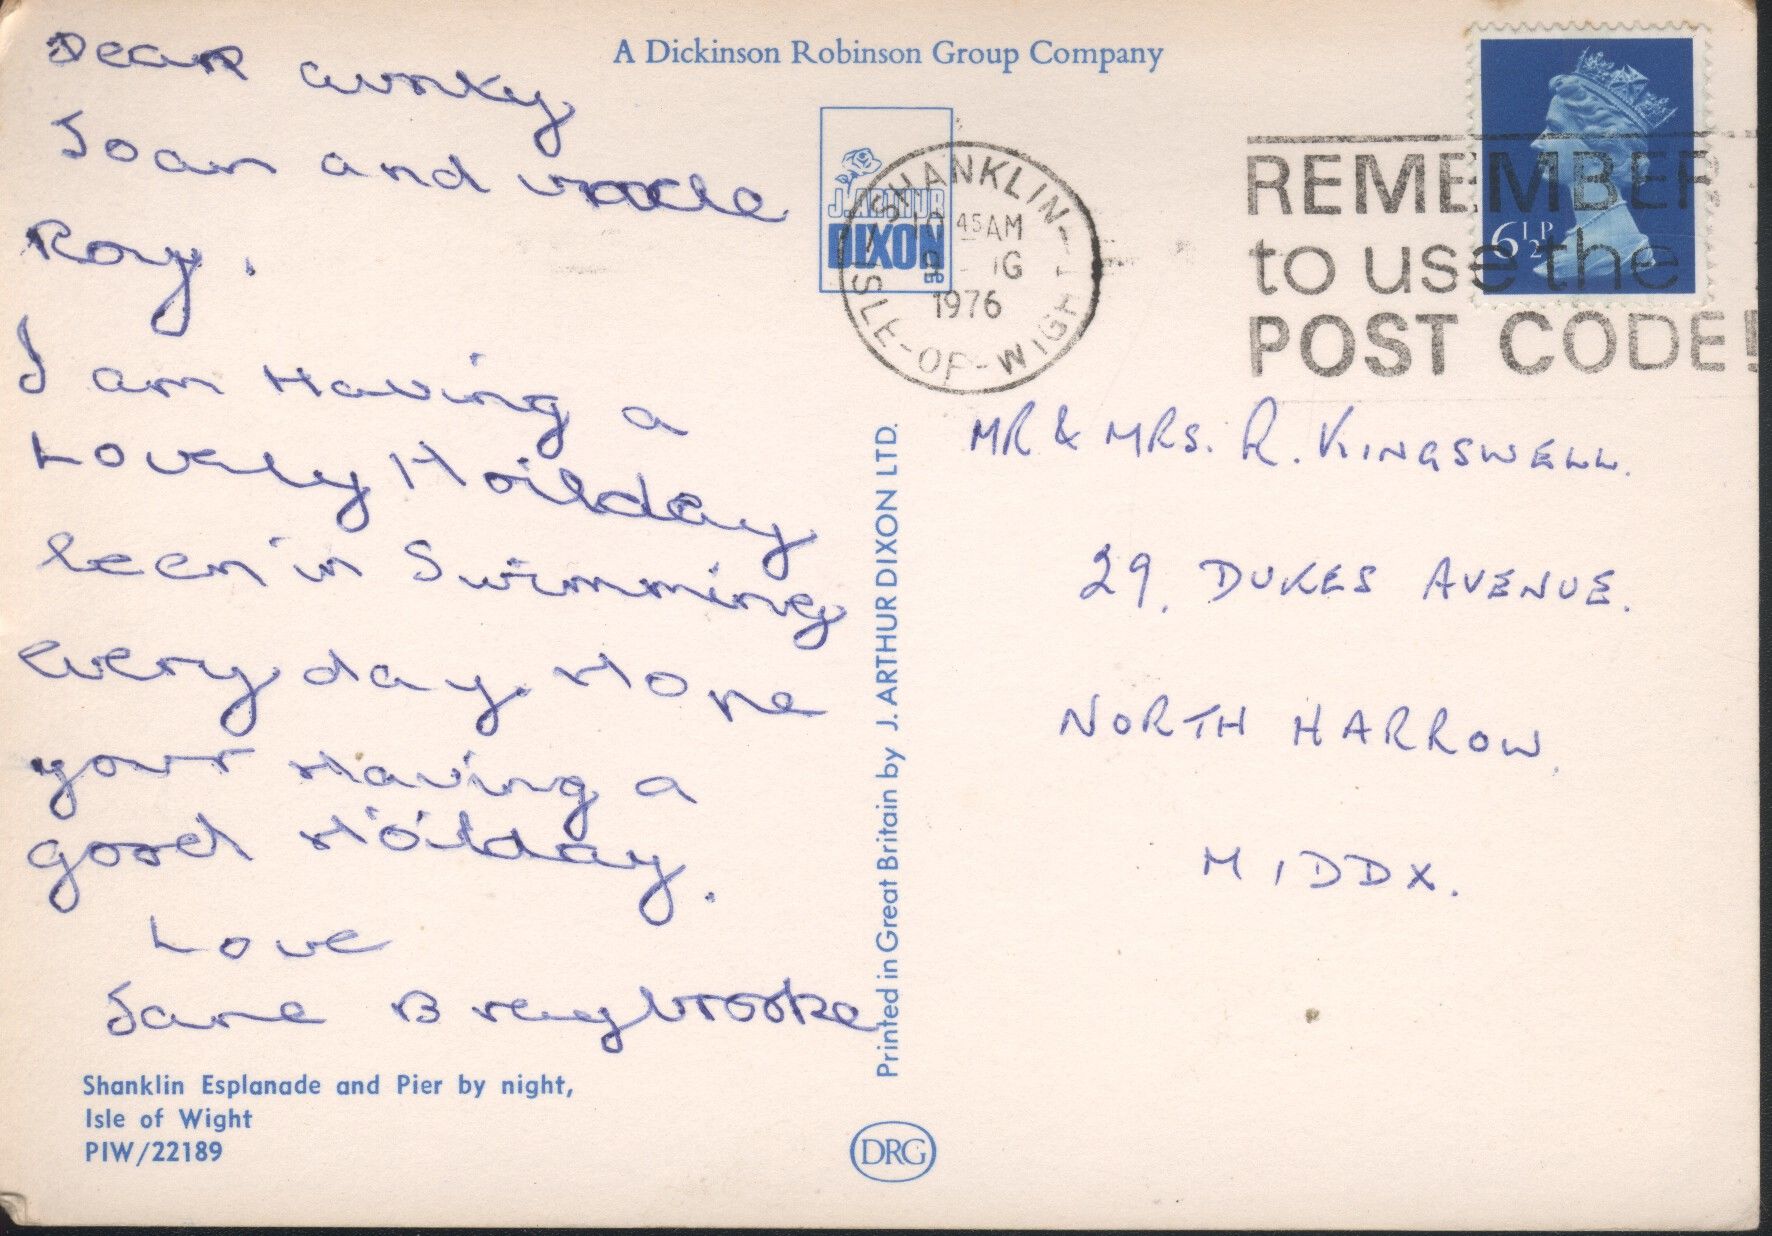 A Dickinson Robinson Group Company
Dear aunky
Joan and uncle
Roy.
I am Having a
Lovely Hoilday
been in Swimming
every day. Hope
your Having a
good Hoilday.
Love
Jane Breybrooke
Shanklin Esplanade and Pier by night,
Isle of Wight
PIW/22189
J. ARTHUR
DIXON
Printed in Great Britain by J. ARTHUR DIXON LTD.
DRG
SHANKLIN
10 45AM
1976
ISLE-OF-WIGHT
REMEMBER
to use the
POST CODE!
6½P
MR & MRS. R. KINGSWELL.
29, DUKES AVENUE.
NORTH HARROW,
MIDDX.